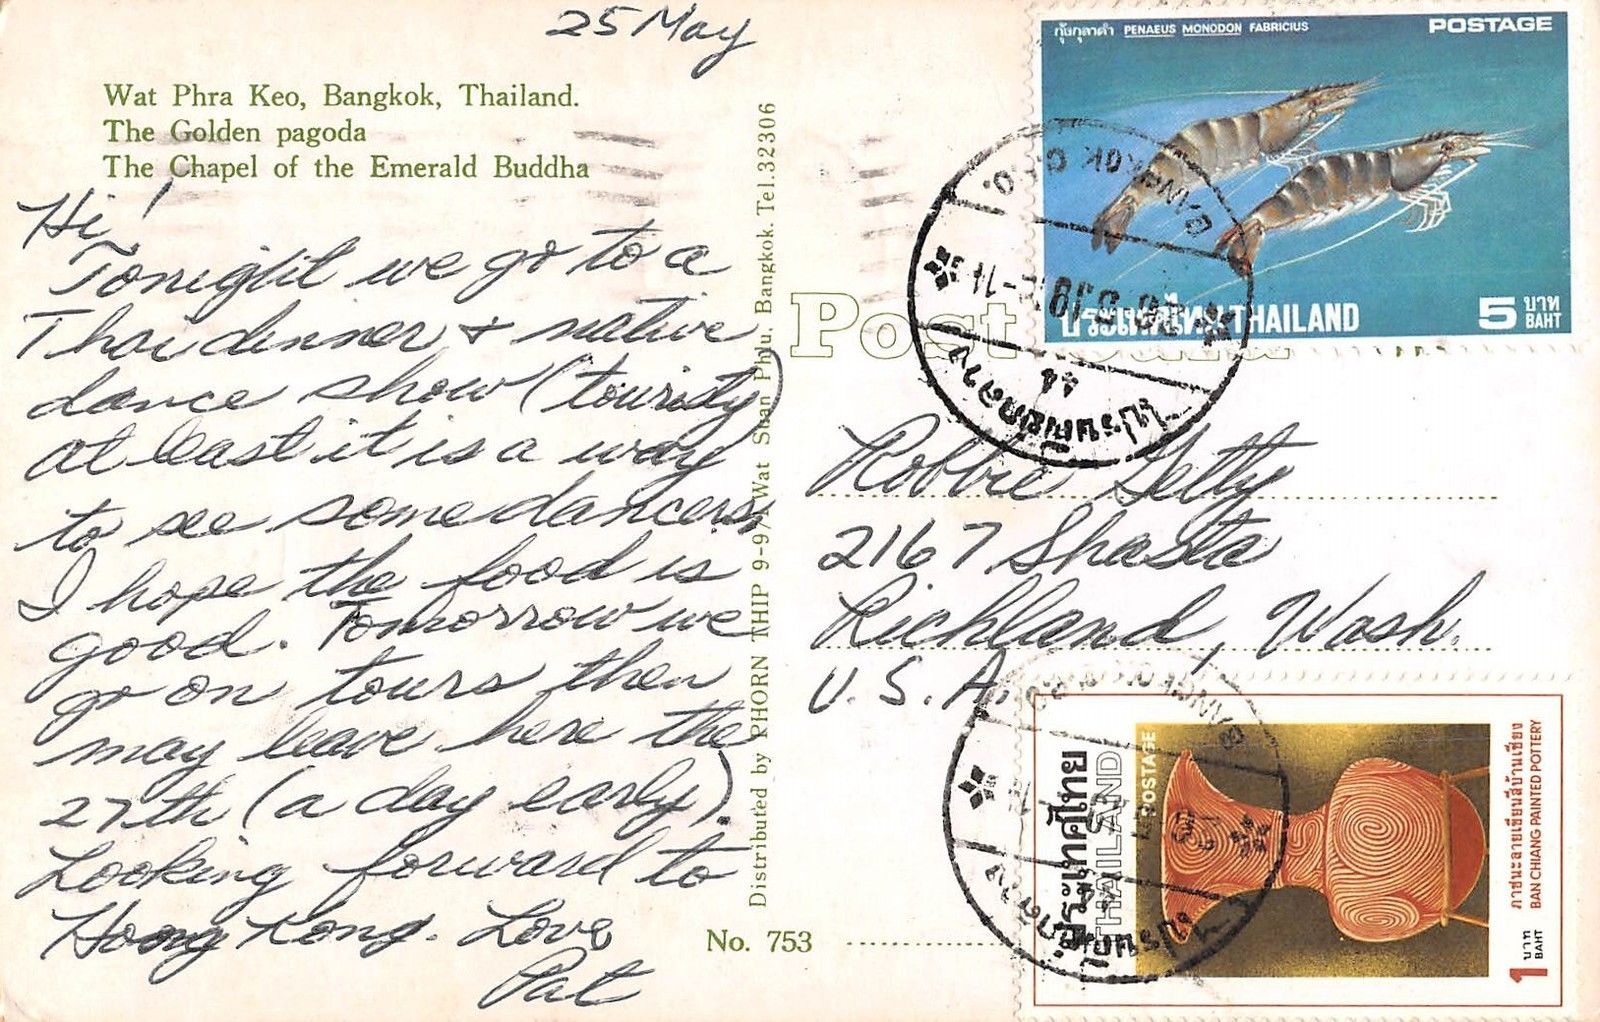 25 May
Wat Phra Keo, Bangkok, Thailand.
The Golden pagoda
The Chapel of the Emerald Buddha
Hi!
Tonight we go to a
Thai dinner & native
dance show (touristy)
at least it is a way
to see some dancers,
I hope the food is
good. Tomorrow we
go on tours then
may leave here the
27th (a day early).
Looking forward to
Hong Kong. Love
Pat
No. 753
Distributed by PHORN THIP 9-97 Wat Suan Phlu. Bangkok. Tel.32306
Post Card
กุ้งกุลาดำ PENAEUS MONODON FABRICIUS POSTAGE
ประเทศไทย THAILAND
5 บาท BAHT
BANGKOK G.P.O.
ไปรษณีย์กลาง
Robbie Getty
2167 Shasta
Richland, Wash.
U.S.A.
ประเทศไทย
THAILAND
POSTAGE
ภาชนะลายเขียนสีบ้านเชียง
BAN CHIANG PAINTED POTTERY
1 บาท BAHT